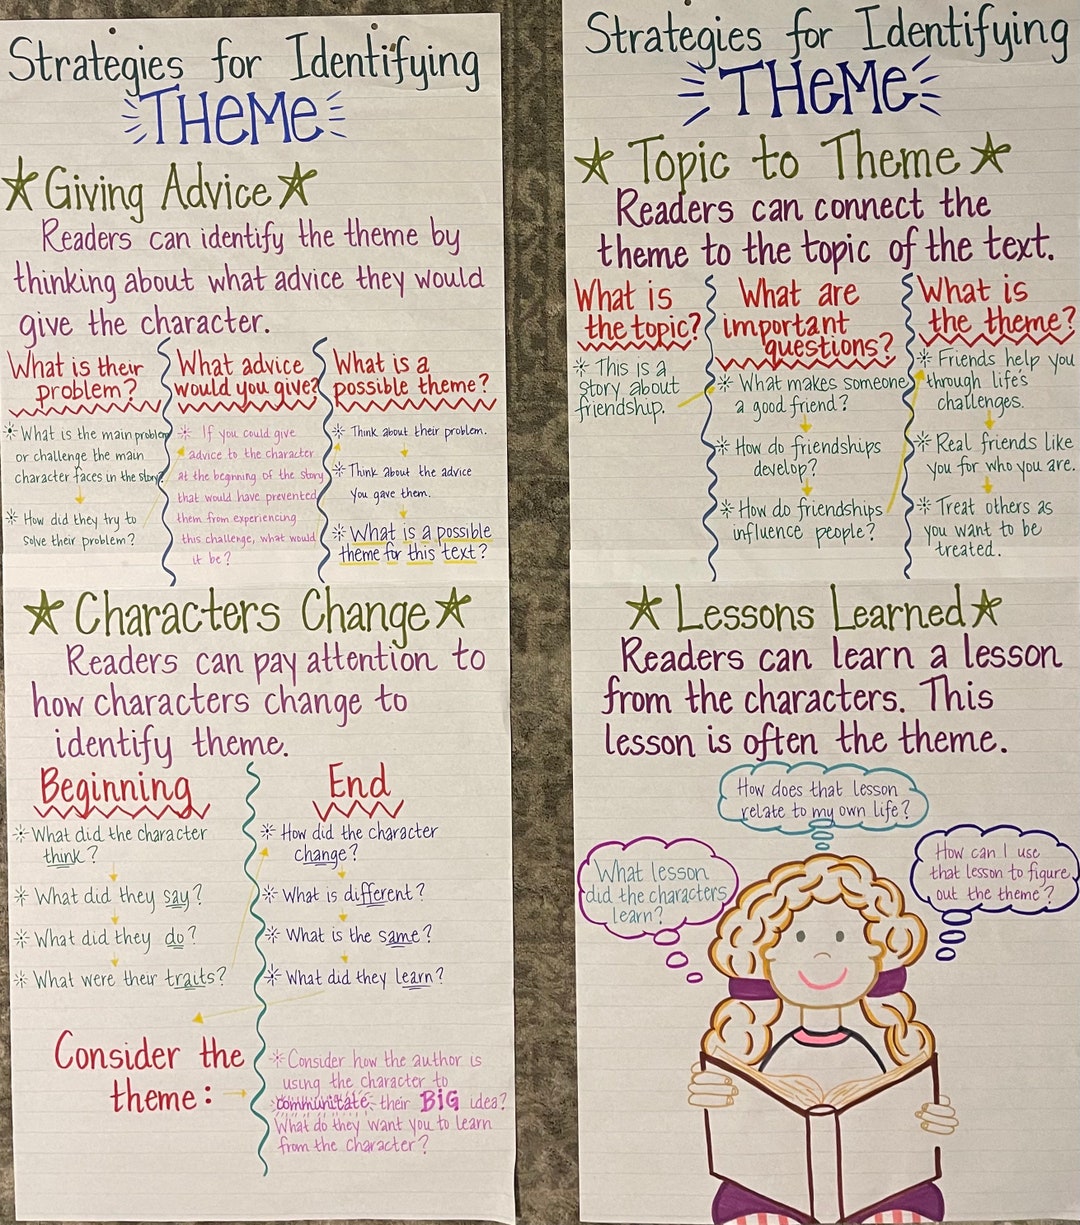 Strategies for Identifying
THEME
Giving Advice
Readers can identify the theme by
thinking about what advice they would
give the character.
What is their
problem?
What is the main problem
or challenge the main
character faces in the story?
How did they try to
solve their problem?
What advice
would you give?
If you could give
advice to the character
at the beginning of the story
that would have prevented
them from experiencing
this challenge, what would
it be?
What is a
possible theme?
Think about their problem.
Think about the advice
you gave them.
What is a possible
theme for this text?
Characters Change
Readers can pay attention to
how characters change to
identify theme.
Beginning
What did the character
think?
What did they say?
What did they do?
What were their traits?
End
How did the character
change?
What is different?
What is the same?
What did they learn?
Consider the
theme:
Consider how the author is
using the character to
communitate their BIG idea?
What do they want you to learn
from the character?
Strategies for Identifying
THEME
Topic to Theme
Readers can connect the
theme to the topic of the text.
What is
the topic?
This is a
story about
friendship.
What are
important
questions?
What makes someone
a good friend?
How do friendships
develop?
How do friendships
influence people?
What is
the theme?
Friends help you
through life's
challenges.
Real friends like
you for who you are.
Treat others as
you want to be
treated.
Lessons Learned
Readers can learn a lesson
from the characters. This
lesson is often the theme.
How does that lesson
relate to my own life?
What lesson
did the characters
learn?
How can I use
that lesson to figure
out the theme?